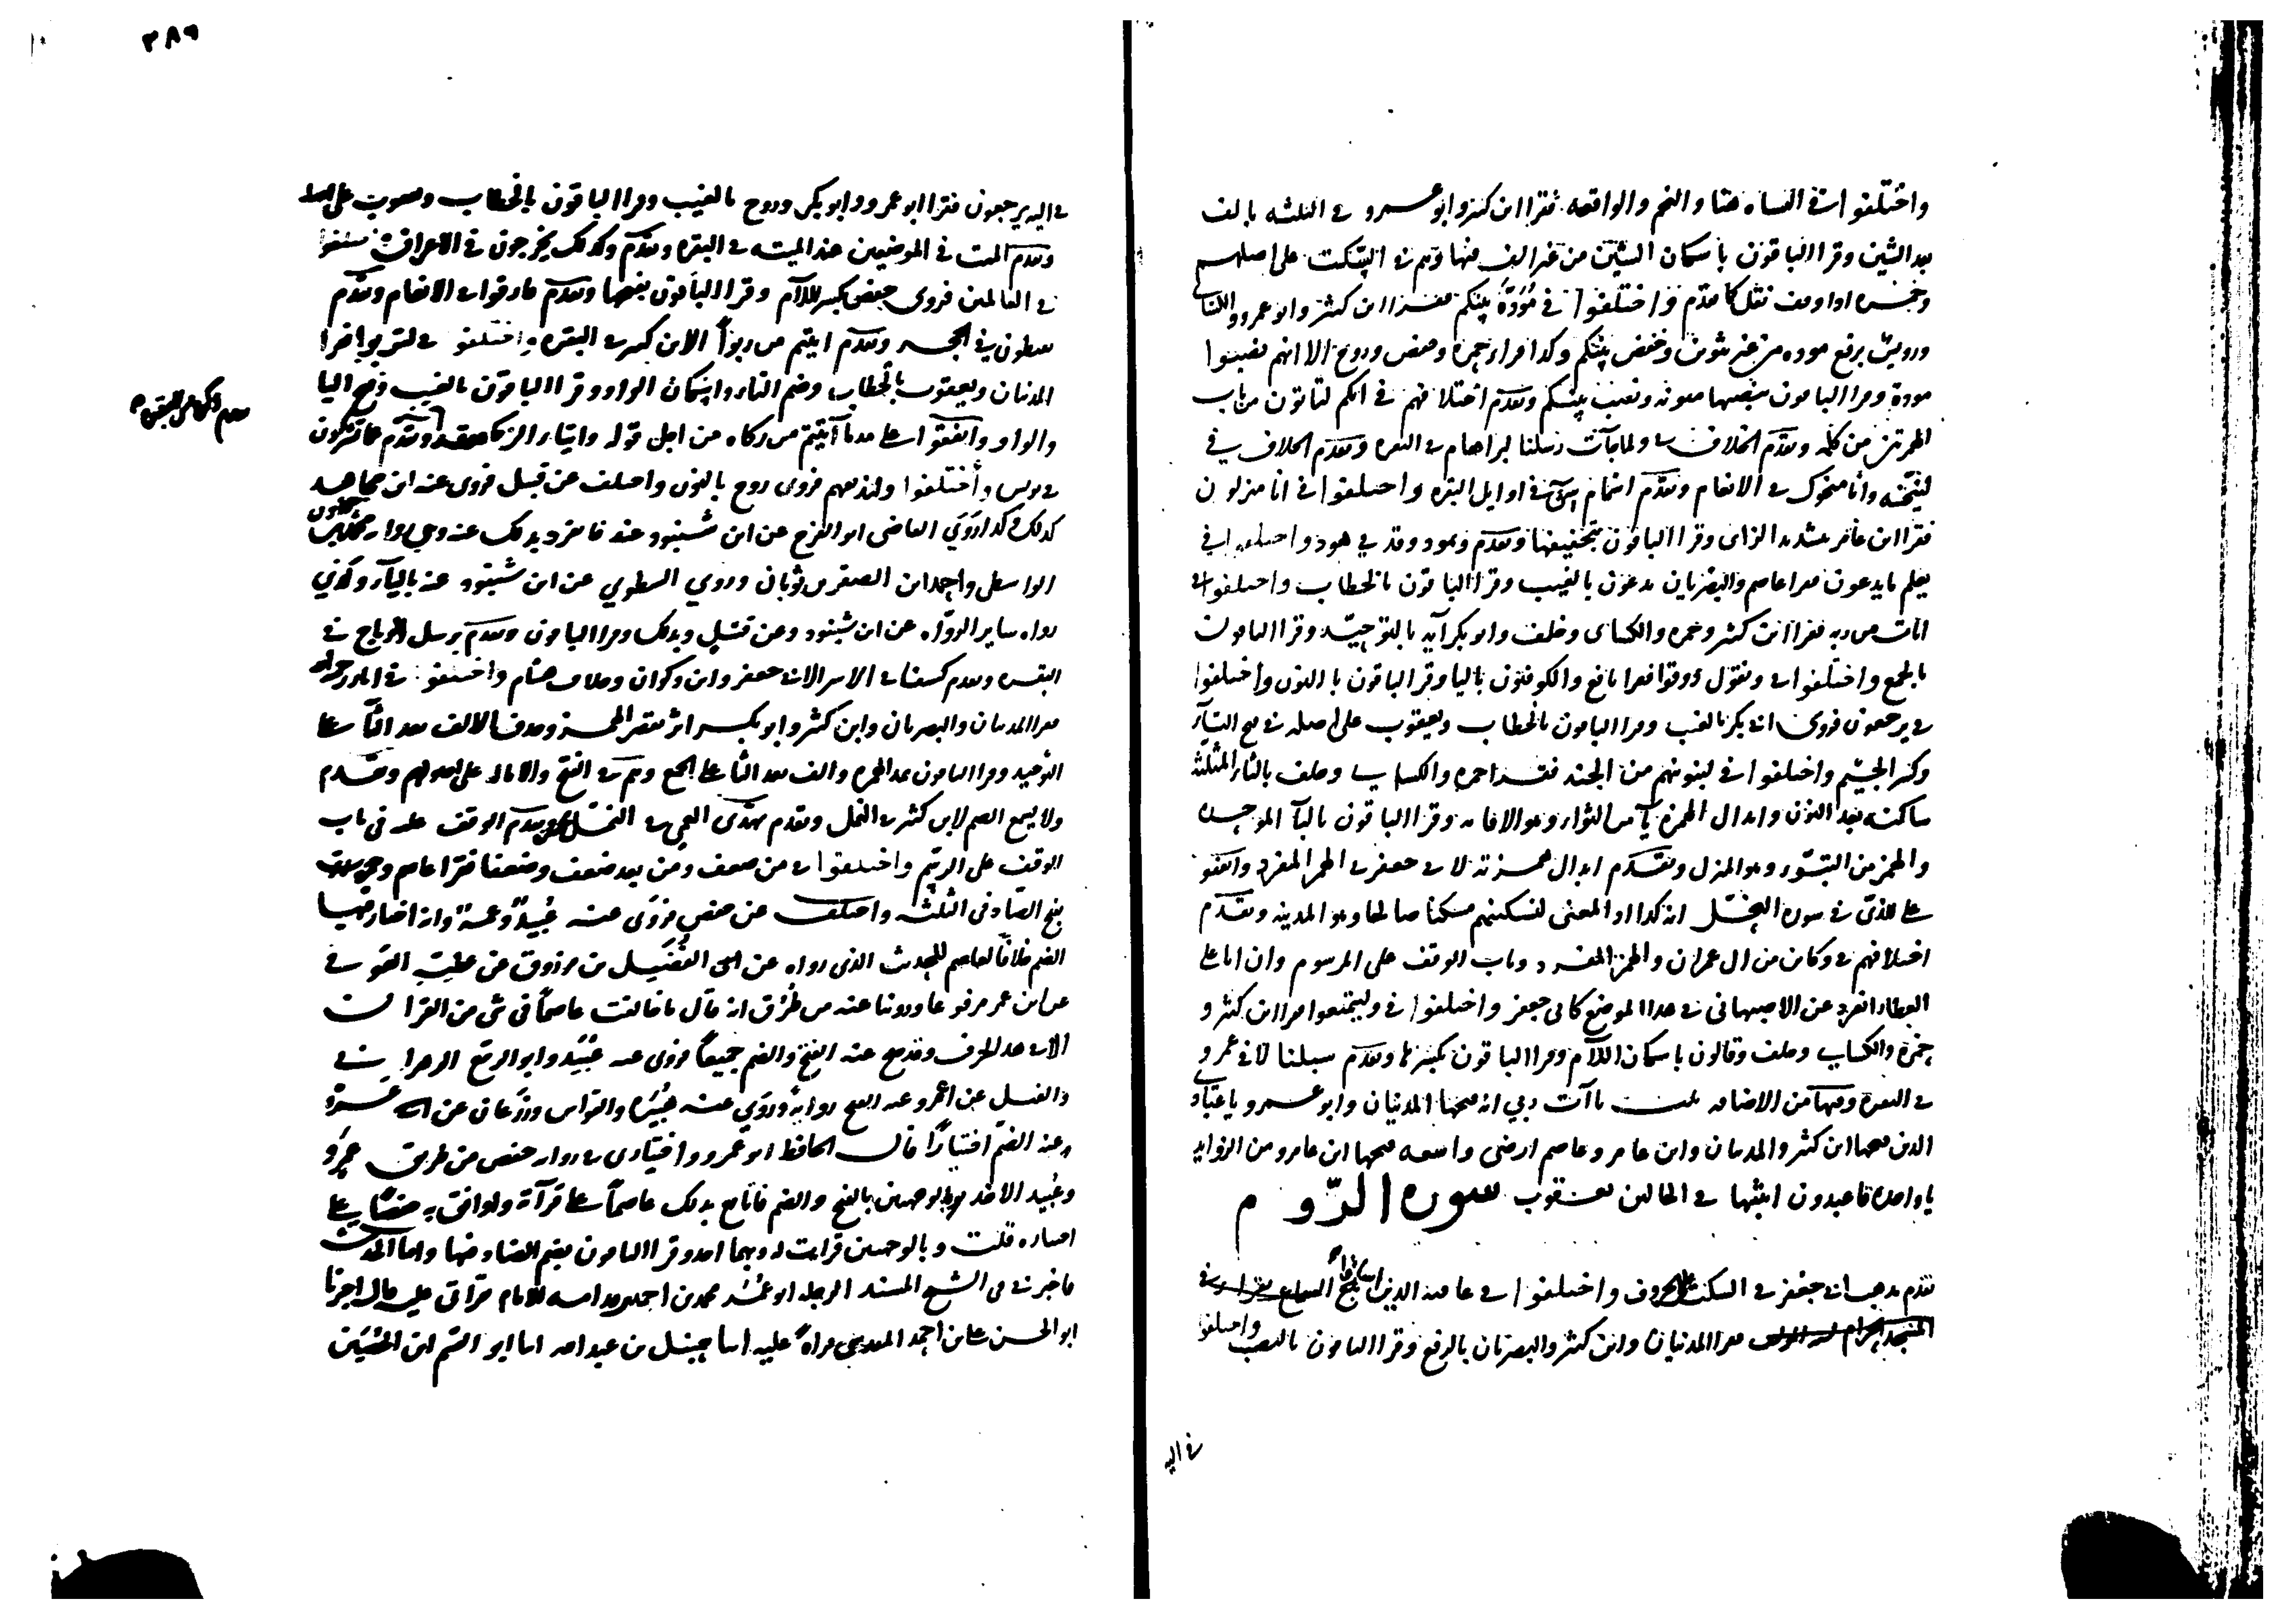 واختلفوا في النشاه هنا والنجم والواقعه فقرا ابن كثير وابو عمرو في الثلثه بالف
بعد الشين وقرا الباقون باسكان الشين من غير الف فيها وهم في السكت على اصلهم
وحمزه اذا وقف نقل كما تقدم واختلفوا في مودة بينكم فقرا ابن كثير وابو عمرو والكسائي
ورويس برفع موده من غير تنوين وخفض بينكم وكذا قرا حمزه وحفص وروح الا انهم نصبوا
مودة وقرا الباقون بنصبها منونه ونصب بينكم وتقدم اختلافهم في ائنكم لتاتون من باب
الهمزتين من كلمه وتقدم الخلاف في ولما جآت رسلنا ابراهام في البقره وتقدم الخلاف في
لننجينه وانا منجوك في الانعام وتقدم اشمام سيء في اوايل البقره واختلفوا في انا منزلون
فقرا ابن عامر بتشديد الزاى وقرا الباقون بتخفيفها وتقدم وثمود وقد في هود واختلفوا في
يعلم ما يدعون فقرا عاصم والبصريان يدعون بالغيب وقرا الباقون بالخطاب واختلفوا في
ايات من ربه فقرا ابن كثير وحمزه والكسائ وخلف وابو بكر آيه بالتوحيد وقرا الباقون
بالجمع واختلفوا في ونقول ذوقوا فقرا نافع والكوفيون باليا وقرا الباقون بالنون واختلفوا
في يرجعون فروى ابو بكر بالغيب وقرا الباقون بالخطاب ويعقوب على اصله في فتح التآ
وكسر الجيم واختلفوا في لنبوئنهم من الجنه فقرا حمزه والكسائي وخلف بالثاء المثلثه
ساكنه بعد النون وابدال الهمزه يآ من الثواء وهو الاقامه وقرا الباقون بالبآ الموحده
والهمز من التبوء وهو المنزل وتقدم ابدال همزته لابي جعفر في الهمز المفرد واتفقوا
على الذي في سورة النحل انه كذا اذ المعنى لنسكننهم مسكنا صالحا وهو المدينه وتقدم
اختلافهم في وكاين من ال عمران والهمز المفرد وباب الوقف على المرسوم وان ابا علي
العطار انفرد عن الاصبهاني في هذا الموضع كابي جعفر واختلفوا في وليتمتعوا فقرا ابن كثير و
حمزة والكسائي وخلف وقالون باسكان اللام وقرا الباقون بكسرها وتقدم سبلنا لابي عمرو
في البقره وفيها من الاضافه ثلث يآات ربي انه فتحها المدنيان وابو عمرو يا عبادي
الذين فتحها ابن كثير والمدنيان وابن عامر وعاصم ارضى واسعه فتحها ابن عامر ومن الزوايد
ياء واحده فاعبدون اثبتها في الحالين يعقوب سورة الروم
تقدم مذهب ابي جعفر في السكت على الحروف واختلفوا في عاقبه الذين اساءوا
فقرا المدنيان وابن كثير والبصريان بالرفع وقرا الباقون بالنصب واختلفوا
في اليه
٣٨٩
في اليه يرجعون فقرا ابو عمرو وابو بكر وروح بالغيب وقرا الباقون بالخطاب ويعقوب على اصله
وتقدم الميت في الموضعين عند الميته في البقره وتقدم وكذلك يخرجون في الاعراف واختلفوا
في العالمين فروى حفص بكسر اللام وقرا الباقون بفتحها وتقدم فارقوا في الانعام وتقدم
يقنطون في الحجر وتقدم اتيتم من ربوا لابن كثير في البقره واختلفوا في لتربوا فقرا
المدنيان ويعقوب بالخطاب وضم التاء واسكان الواو وقرا الباقون بالغيب وفتح اليا
والواو واتفقوا على مد ما آتيتم من زكاه من اجل قوله وايتاء الزكاه وتقدم عما تشركون
في يونس واختلفوا وليذيقهم فروى روح بالنون واختلف عن قنبل فروى عنه ابن مجاهد
كذلك وكذا روى القاضى ابو الفرج عن ابن شنبوذ عنه فانفرد بذلك عنه
الواسطى واحمد بن الصقر بن ثوبان وروي الشطوي عن ابن شنبوذ عنه باليآء وكذي
رواه ساير الرواه عن ابن شنبوذ وعن قنبل وبذلك وقرا الباقون وتقدم يرسل الرياح في
البقره وتقدم كسفا في الاسرا لابي جعفر وابن ذكوان وخلاف هشام واختلفوا في
فقرا المدنيان والبصريان وابن كثير وابو بكر اثر بقصر الهمزه وحذف الالف بعد الثآ على
التوحيد وقرا الباقون بمد الهمزه والف بعد الثا على الجمع وهم في الفتح والاماله على اصولهم وتقدم
ولا يسمع الصم لابن كثير في النمل وتقدم تهدى العمي في النمل وتقدم الوقف عليه في باب
الوقف على الرسم واختلفوا في من ضعف ومن بعد ضعف وضعفا فقرا عاصم وحمزه
بفتح الضاد في الثلثه واختلف عن حفص فروى عنه عبيد وعمرو انه اختار فيها
الضم خلافا لعاصم للحديث الذى رواه عن الفضيل بن مرزوق عن عطيه العوفي
عن ابن عمر مرفوعا وروينا عنه من طرق انه قال ما خالفت عاصما في شي من القران
الا في هذا الحرف وقد صح عنه الفتح والضم جميعا فروى عنه عبيد وابو الربيع الزهراني
والفيل عن عمرو عنه الفتح رواية وروى عنه هبيره والقواس وزرعان عن عمرو
عنه الضم اختيارا قال الحافظ ابو عمرو واختيارى في روايه حفص من طريق عمرو
وعبيد الاخذ بالوجهين بالفتح والضم فاتابع بذلك عاصما على قرآته واوافق به حفصا على
اختياره قلت وبالوجهين قرات له وبهما اخذ وقرا الباقون بضم الضاد فيها واما الحديث
فاخبرني به الشيخ المسند الرحله ابو عمر محمد بن احمد بن قدامه الامام قراتي عليه قال اخبرنا
ابو الحسن علي بن احمد المقدسى قراة عليه انا حنبل بن عبد الله انا ابو القسم ابن الحصين